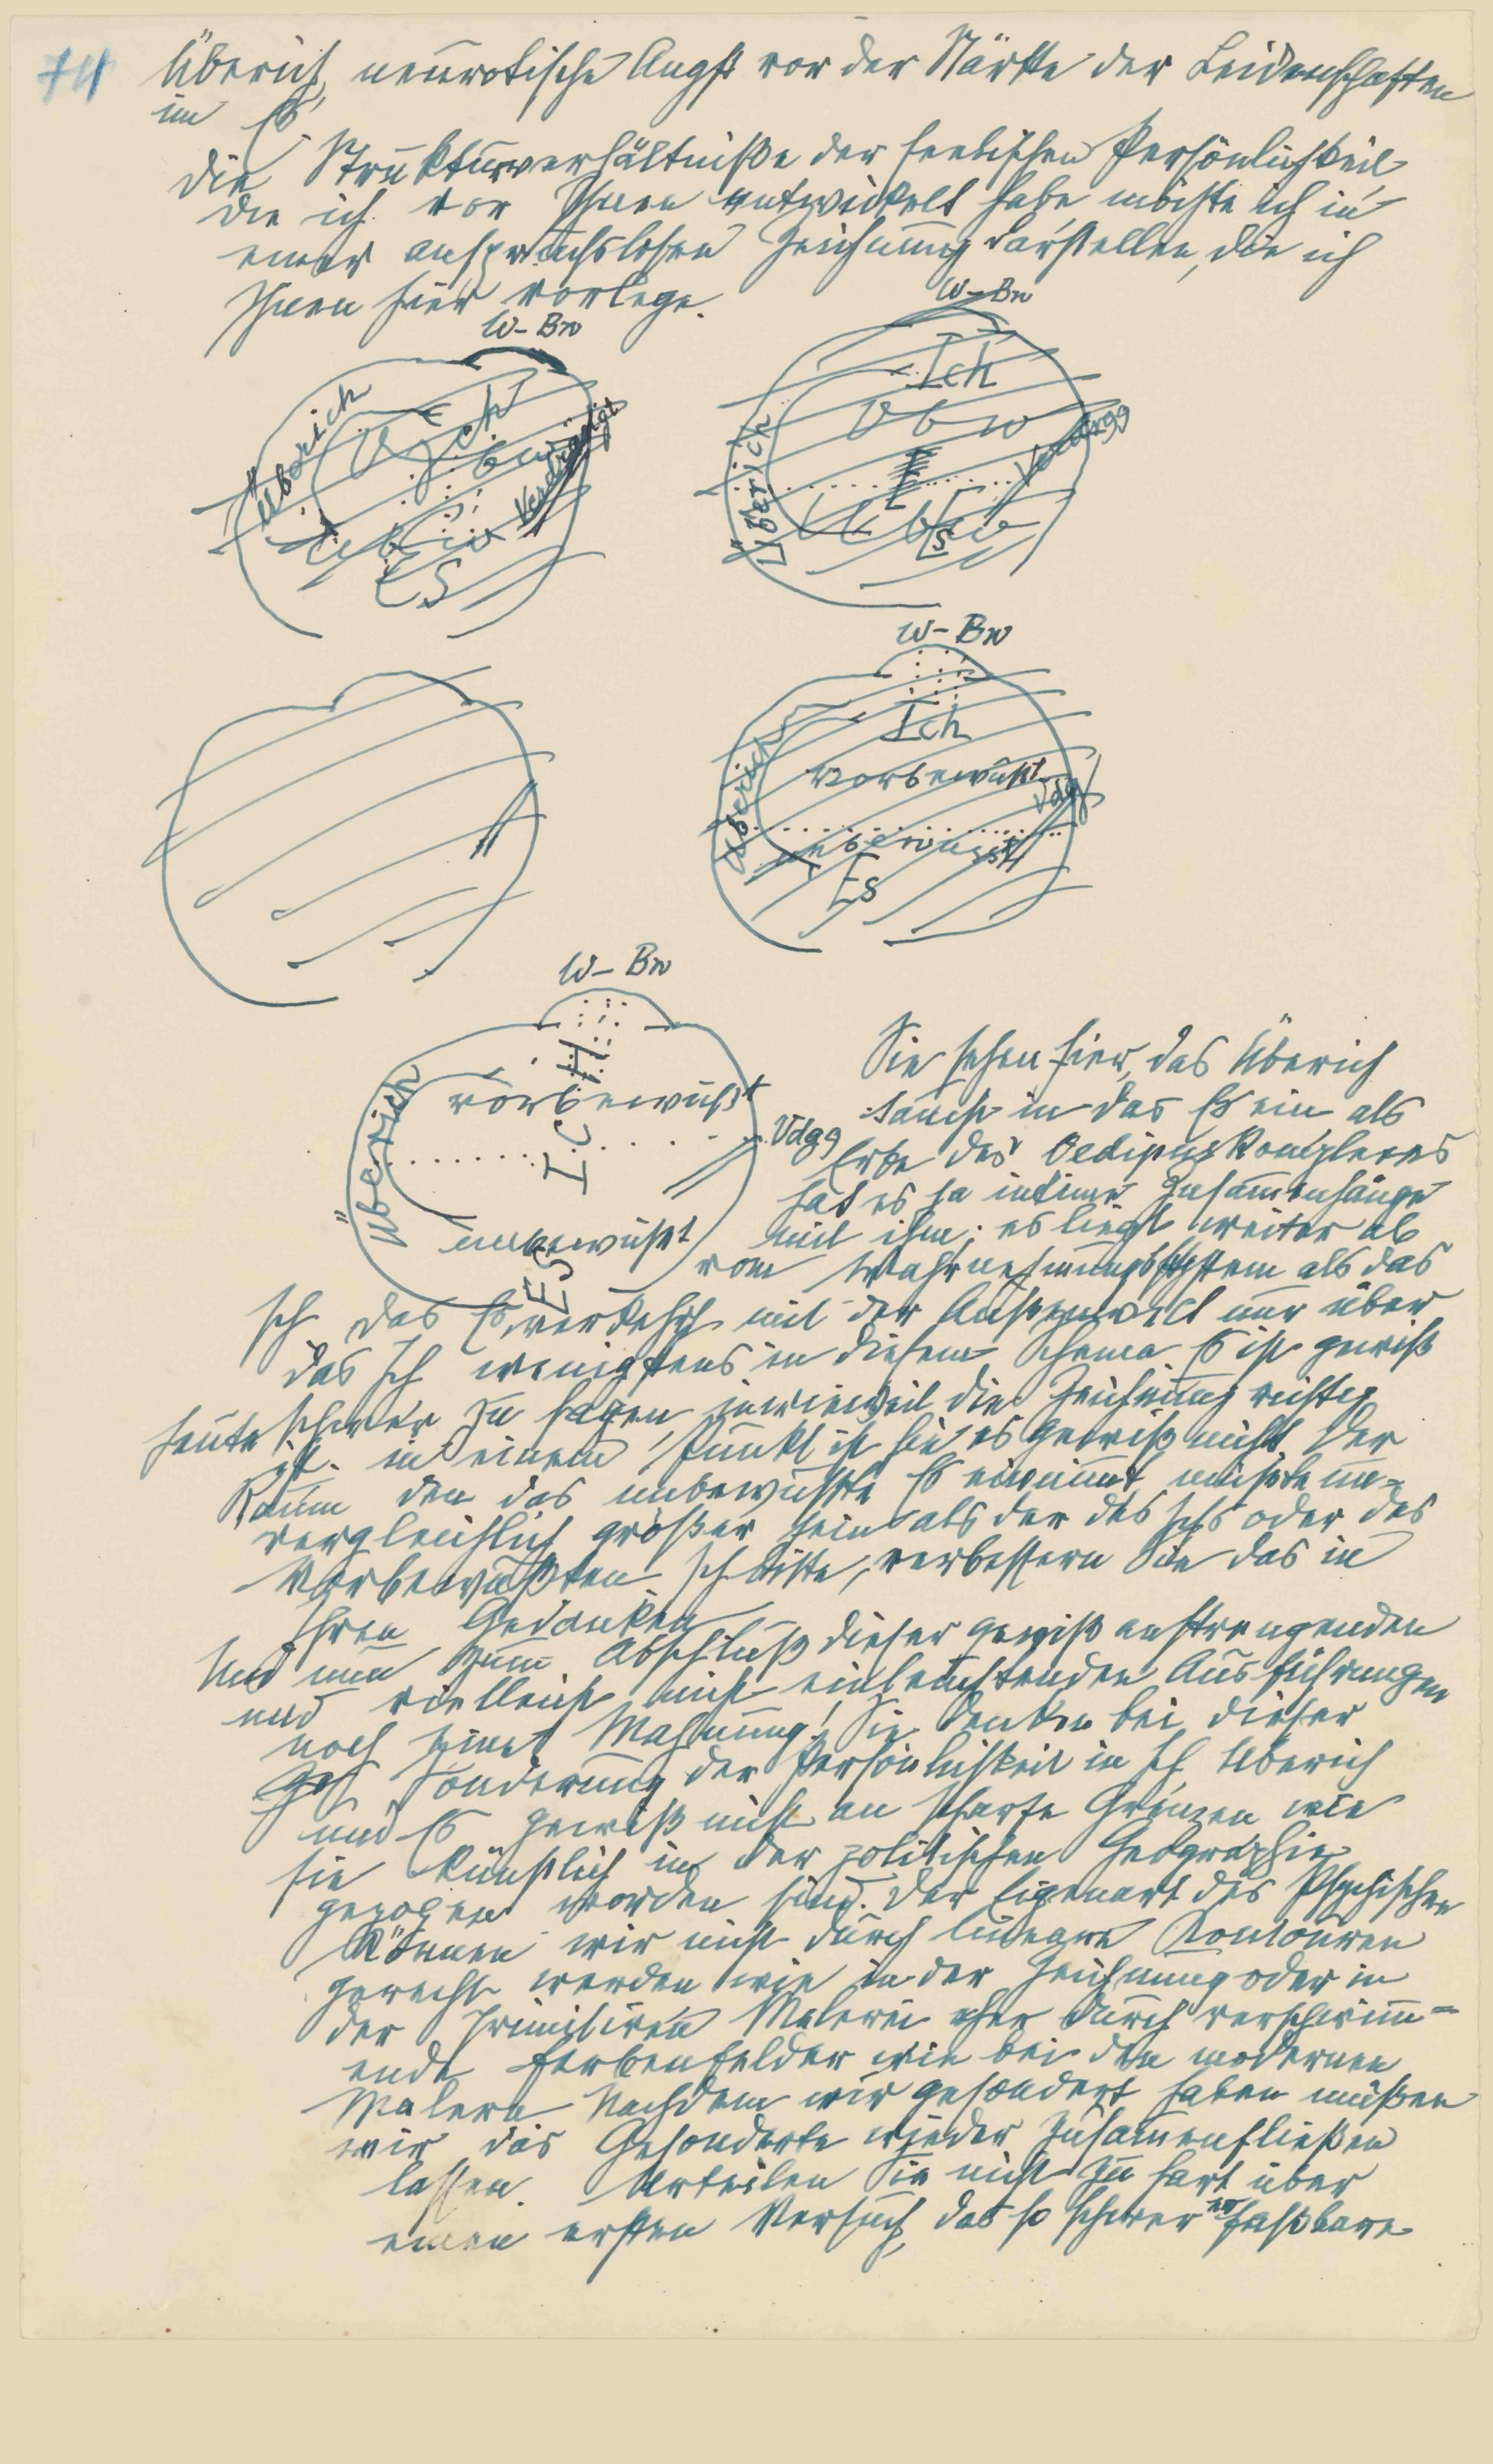 74
Überich, neurotische Angst vor der Stärke der Leidenschaften
im Es.
Die Strukturverhältniße der seelischen Persönlichkeit
die ich vor Ihnen entwickelt habe, möchte ich in
einer anspruchslosen Zeichnung darstellen, die ich
Ihnen hier vorlege.
W-Bw
W-Bw
Überich
Ich
Verdrängt
Ubw
ES
Überich
Ich
Vbw
Verdrgg
Ubw
Es
W-Bw
Überich
Ich
vorbewußt
Vdg
unbewußt
Es
W-Bw
Überich
vorbewußt
ICH
Vdgg
unbewußt
ES
Sie sehen hier, das Überich
taucht in das Es ein als
Erbe des Oedipuskomplexes
hat es ja intime Zusammenhänge
mit ihm; es liegt weiter ab
vom Wahrnehmungssystem als das
Ich. Das Es verkehrt mit der Außenwelt nur über
das Ich wenigstens in diesem Schema. Es ist gewiß
heute schwer zu sagen, inwieweit die Zeichnung richtig
ist. in einem Punkt ist sie es gewiß nicht. Der
Raum den das unbewußte Es einnimmt, müßte un-
vergleichlich größer sein als der des Ichs oder des
Vorbewußten. Ich bitte, verbessern Sie das in
Ihren Gedanken
Und nun zum Abschluß dieser gewiß anstrengenden
und vielleicht nicht einleuchtenden Ausführungen
noch eine Mahnung! Sie denken bei dieser
Sonderung der Persönlichkeit in Ich Überich
und Es gewiß nicht an scharfe Grenzen wie
sie künstlich in der politischen Geographie
gezogen worden sind. Der Eigenart des Psychischen
können wir nicht durch lineare Kontouren
gerecht werden wie in der Zeichnung oder in
der primitiven Malerei eher durch verschwimm=
ende Farbenfelder wie bei den modernen
Malern. Nachdem wir gesondert haben müßen
wir das Gesonderte wieder zusammenfließen
lassen. Urteilen Sie nicht zu hart über
einen ersten Versuch, das so schwer erfaßbare